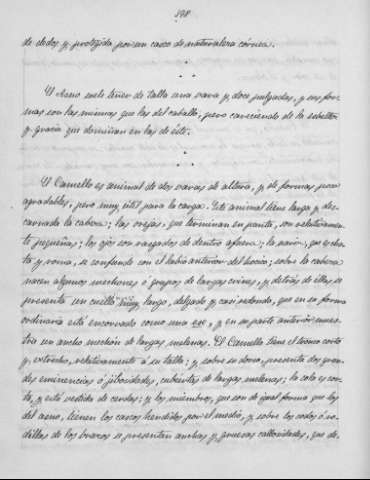 198
de dedos y protegida por un casco de naturaleza córnea.
El Asno suele tener de talla una vara y doce pulgadas, y sus for-
mas son las mismas que las del caballo, pero careciendo de la esbeltez
y gracia que dominan en las de éste.
El Camello es animal de dos varas de altura, y de formas poco
agradables, pero muy útil para la carga. Este animal tiene larga y des-
carnada la cabeza; las orejas, que terminan en punta, son relativamen-
te pequeñas; los ojos son rasgados de dentro afuera; la nariz, que es cha-
ta y roma, se confunde con el labio anterior del hocico; sobre la cabeza
nacen algunos mechones ó grupos de largas crines, y detrás de ellas se
presenta un cuello muy largo, delgado y casi redondo, que en su forma
ordinaria está encorvado como una ese, y en su parte anterior mues-
tra un ancho mechón de largas melenas. El Camello tiene el tronco corto
y estrecho, relativamente á su talla; y sobre su dorso, presenta dos gran-
des eminencias ó jibosidades, cubiertas de largas melenas; la cola es cor-
ta, y está vestida de cerdas; y los miembros, que son de igual forma que los
del asno, tienen los cascos hendidos por el medio, y sobre los codos ó ro-
dillas de los brazos se presentan anchas y gruesas callosidades, que de-